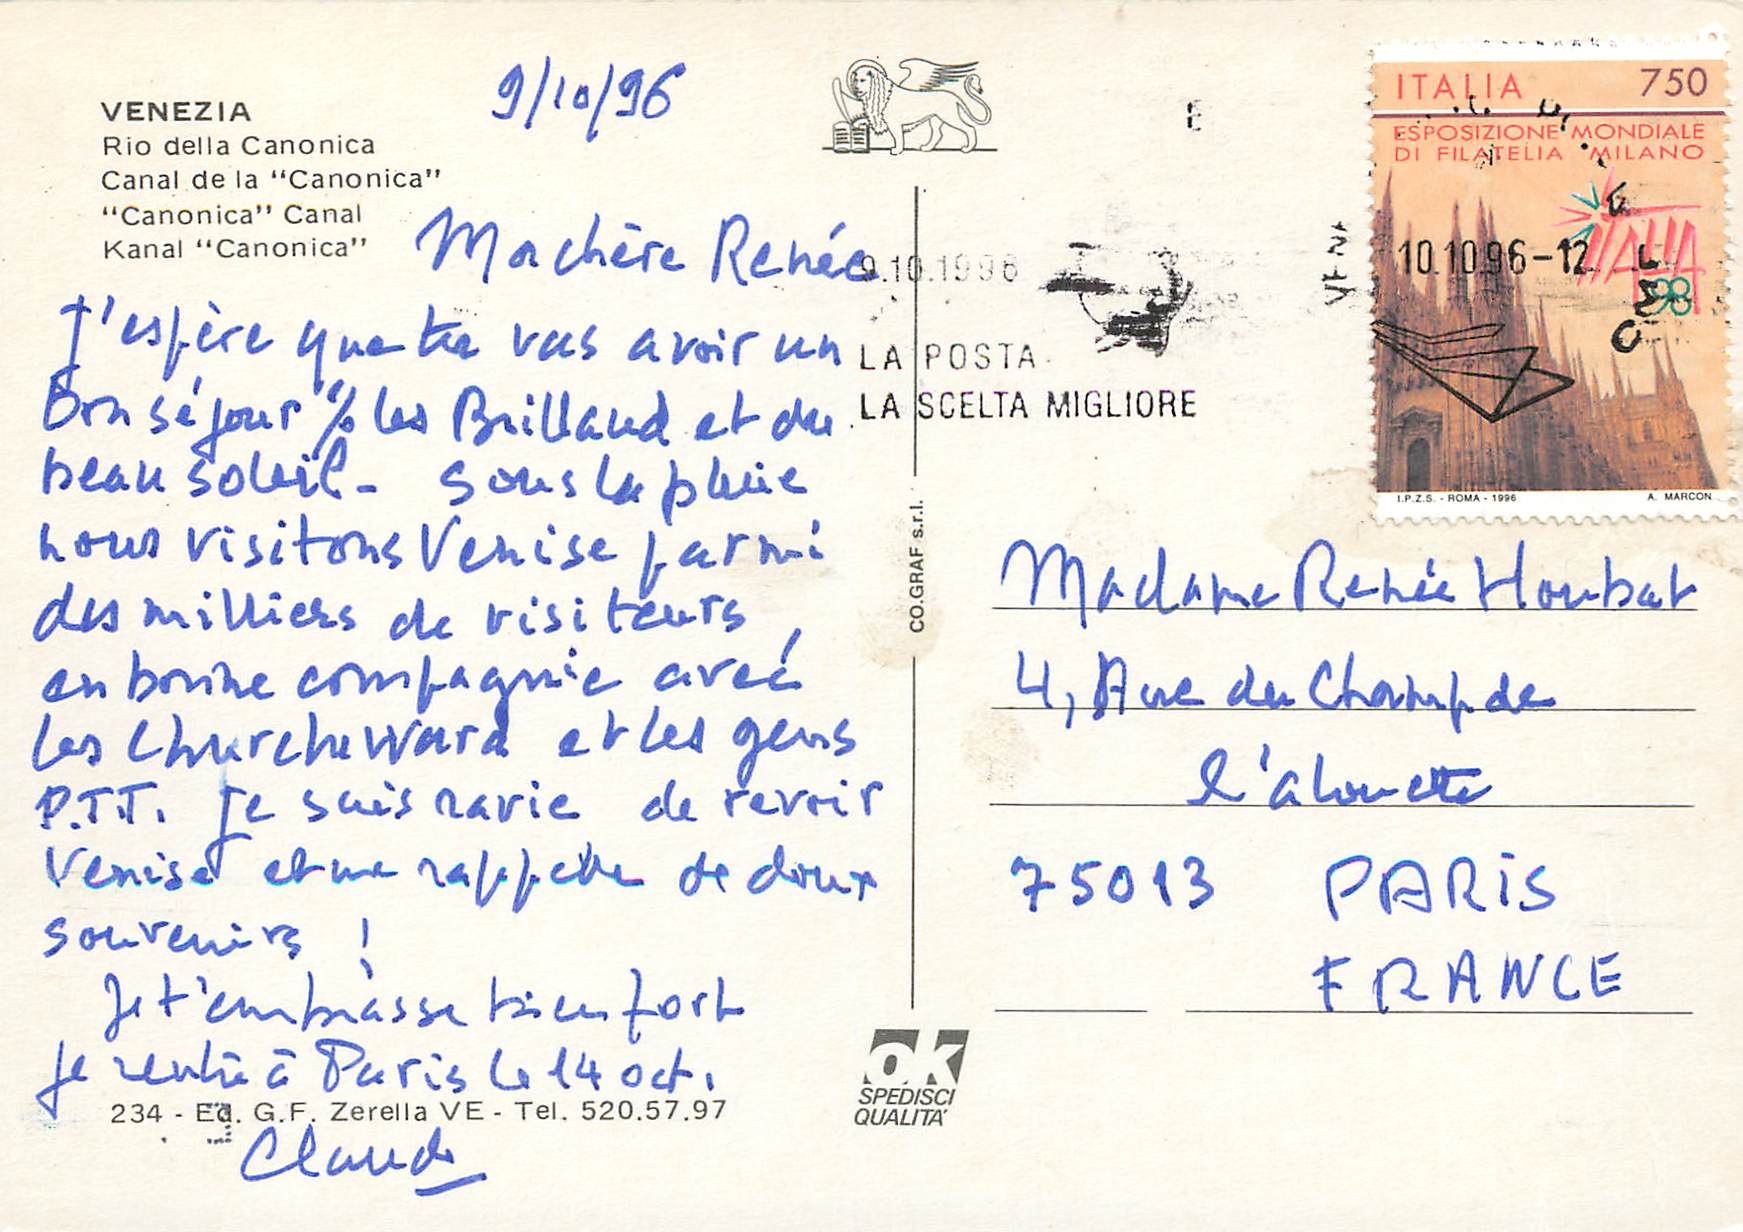 VENEZIA
Rio della Canonica
Canal de la "Canonica"
"Canonica" Canal
Kanal "Canonica"
9/10/96
Ma chère Renée
J'espère que tu vas avoir un
Bon séjour % les Brillaud et du
beau soleil - Sous la pluie
nous visitons Venise parmi
des milliers de visiteurs,
en bonne compagnie avec
les Churchward et les gens
P.T.T. Je suis ravie de revoir
Venise et me rappelle de doux
souvenirs !
Je t'embrasse bien fort
Je rentre à Paris le 14 oct.
234 - Ed. G.F. Zerella VE - Tel. 520.57.97
Claude
CO.GRAF s.r.l.
OK
SPEDISCI
QUALITA'
9.10.1996
LA POSTA
LA SCELTA MIGLIORE
E
VEN
10.10.96-12
ITALIA 750
ESPOSIZIONE MONDIALE
DI FILATELIA MILANO
ITALIA
98
I.P.Z.S. - ROMA - 1996 A. MARCON
Madame Renée Houbat
4, Rue du Champ de
l'alouette
75013 PARIS
FRANCE